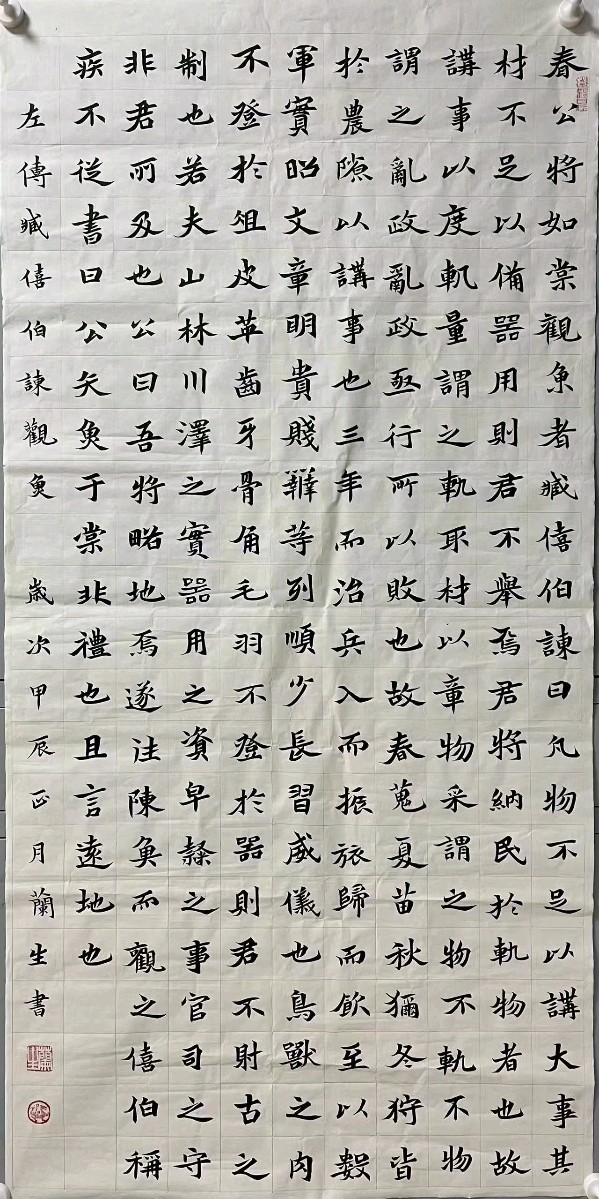 春公將如棠觀魚者臧僖伯諫曰凡物不足以講大事其
材不足以備器用則君不舉焉君將納民於軌物者也故
講事以度軌量謂之軌取材以章物采謂之物不軌不物
謂之亂政亂政亟行所以敗也故春蒐夏苗秋獮冬狩皆
於農隙以講事也三年而治兵入而振旅歸而飲至以數
軍實昭文章明貴賤辨等列順少長習威儀也鳥獸之肉
不登於俎皮革齒牙骨角毛羽不登於器則君不射古之
制也若夫山林川澤之實器用之資皁隸之事官司之守
非君所及也公曰吾將略地焉遂往陳魚而觀之僖伯稱
疾不從書曰公矢魚于棠非禮也且言遠地也
左傳臧僖伯諫觀魚 歲次甲辰正月蘭生書